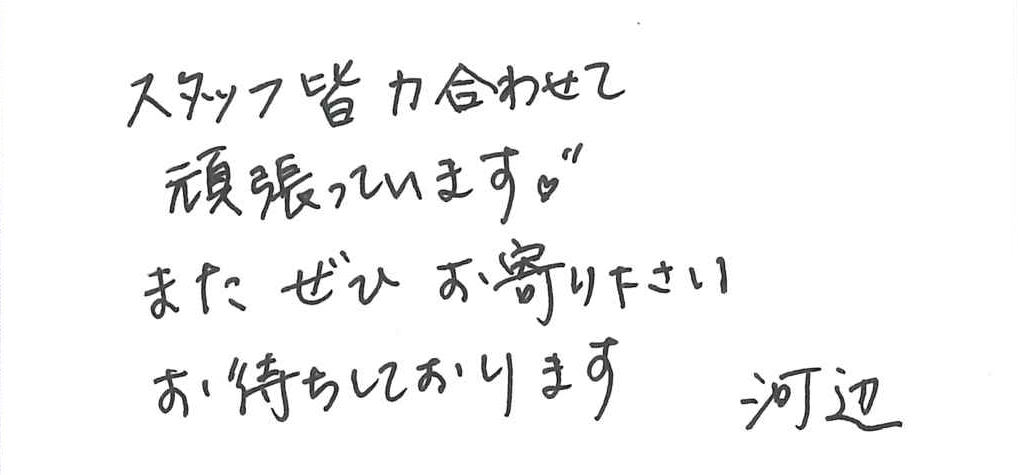 スタッフ皆 力合わせて
頑張っています♡"
また ぜひ お寄り下さい
お待ちしております 河辺